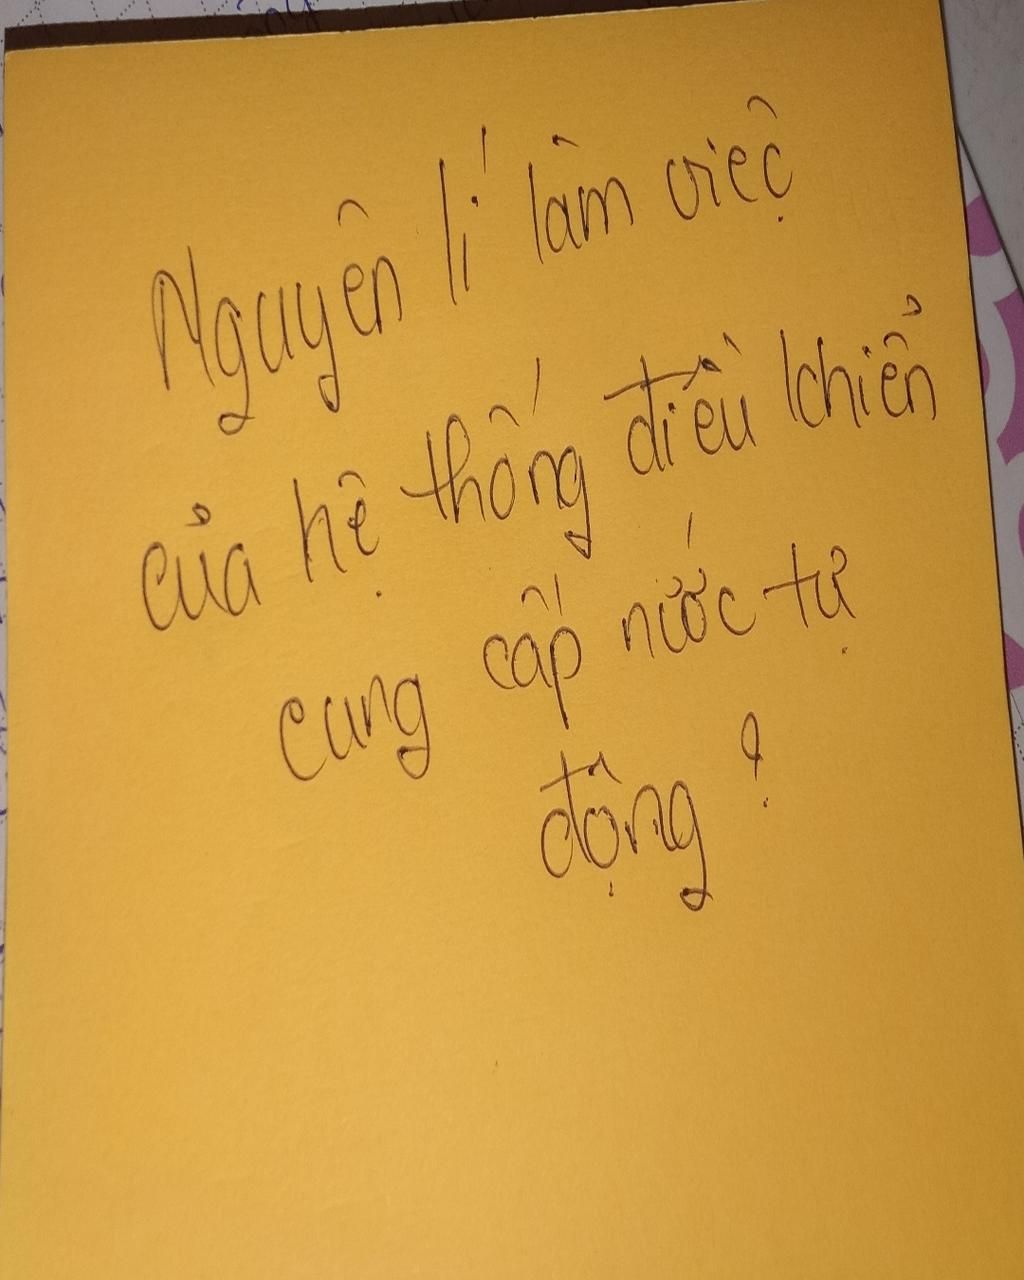 Nguyên lí làm việc
của hệ thống điều khiển
cung cấp nước tự
động ?